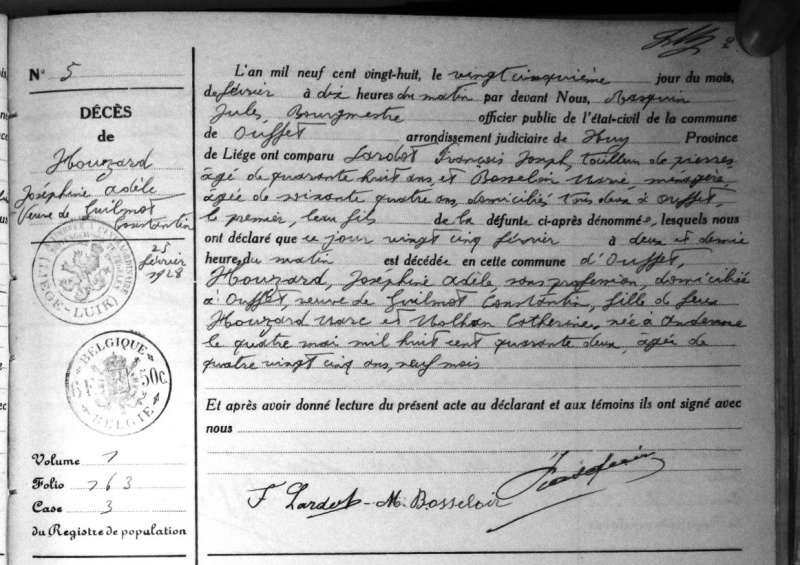 N° 5
DÉCÈS
de
Houzard
Joséphine Adèle
Veuve de Guilmot
Constantin
25
février
1928
(LIÉGE-LUIK)
BELGIQUE
6 F 50c.
BELGIE
Volume 1
Folio 163
Case 3
du Registre de population
L'an mil neuf cent vingt-huit, le vingt cinquième jour du mois,
de février à dix heures du matin par devant Nous,
Jules, Bourgmestre officier public de l'état-civil de la commune
de Ouffet arrondissement judiciaire de Huy Province
de Liége ont comparu Lardot François Joseph, tailleur de pierres
âgé de quarante huit ans, et Bosseloir Marie, ménagère,
agée de soixante quatre ans, domiciliés tous deux à Ouffet,
le premier, beau fils de la défunte ci-après dénommée, lesquels nous
ont déclaré que ce jour vingt cinq février à deux et demie
heures du matin est décédée en cette commune d'Ouffet,
Houzard, Joséphine Adèle, sans profession, domiciliée
à Ouffet, veuve de Guilmot Constantin, fille de feux
Houzard Marc et Catherine, née à Andenne
le quatre mai mil huit cent quarante deux, agée de
quatre vingt cinq ans, neuf mois
Et après avoir donné lecture du présent acte au déclarant et aux témoins ils ont signé avec
nous
F Lardot - M. Bosseloir